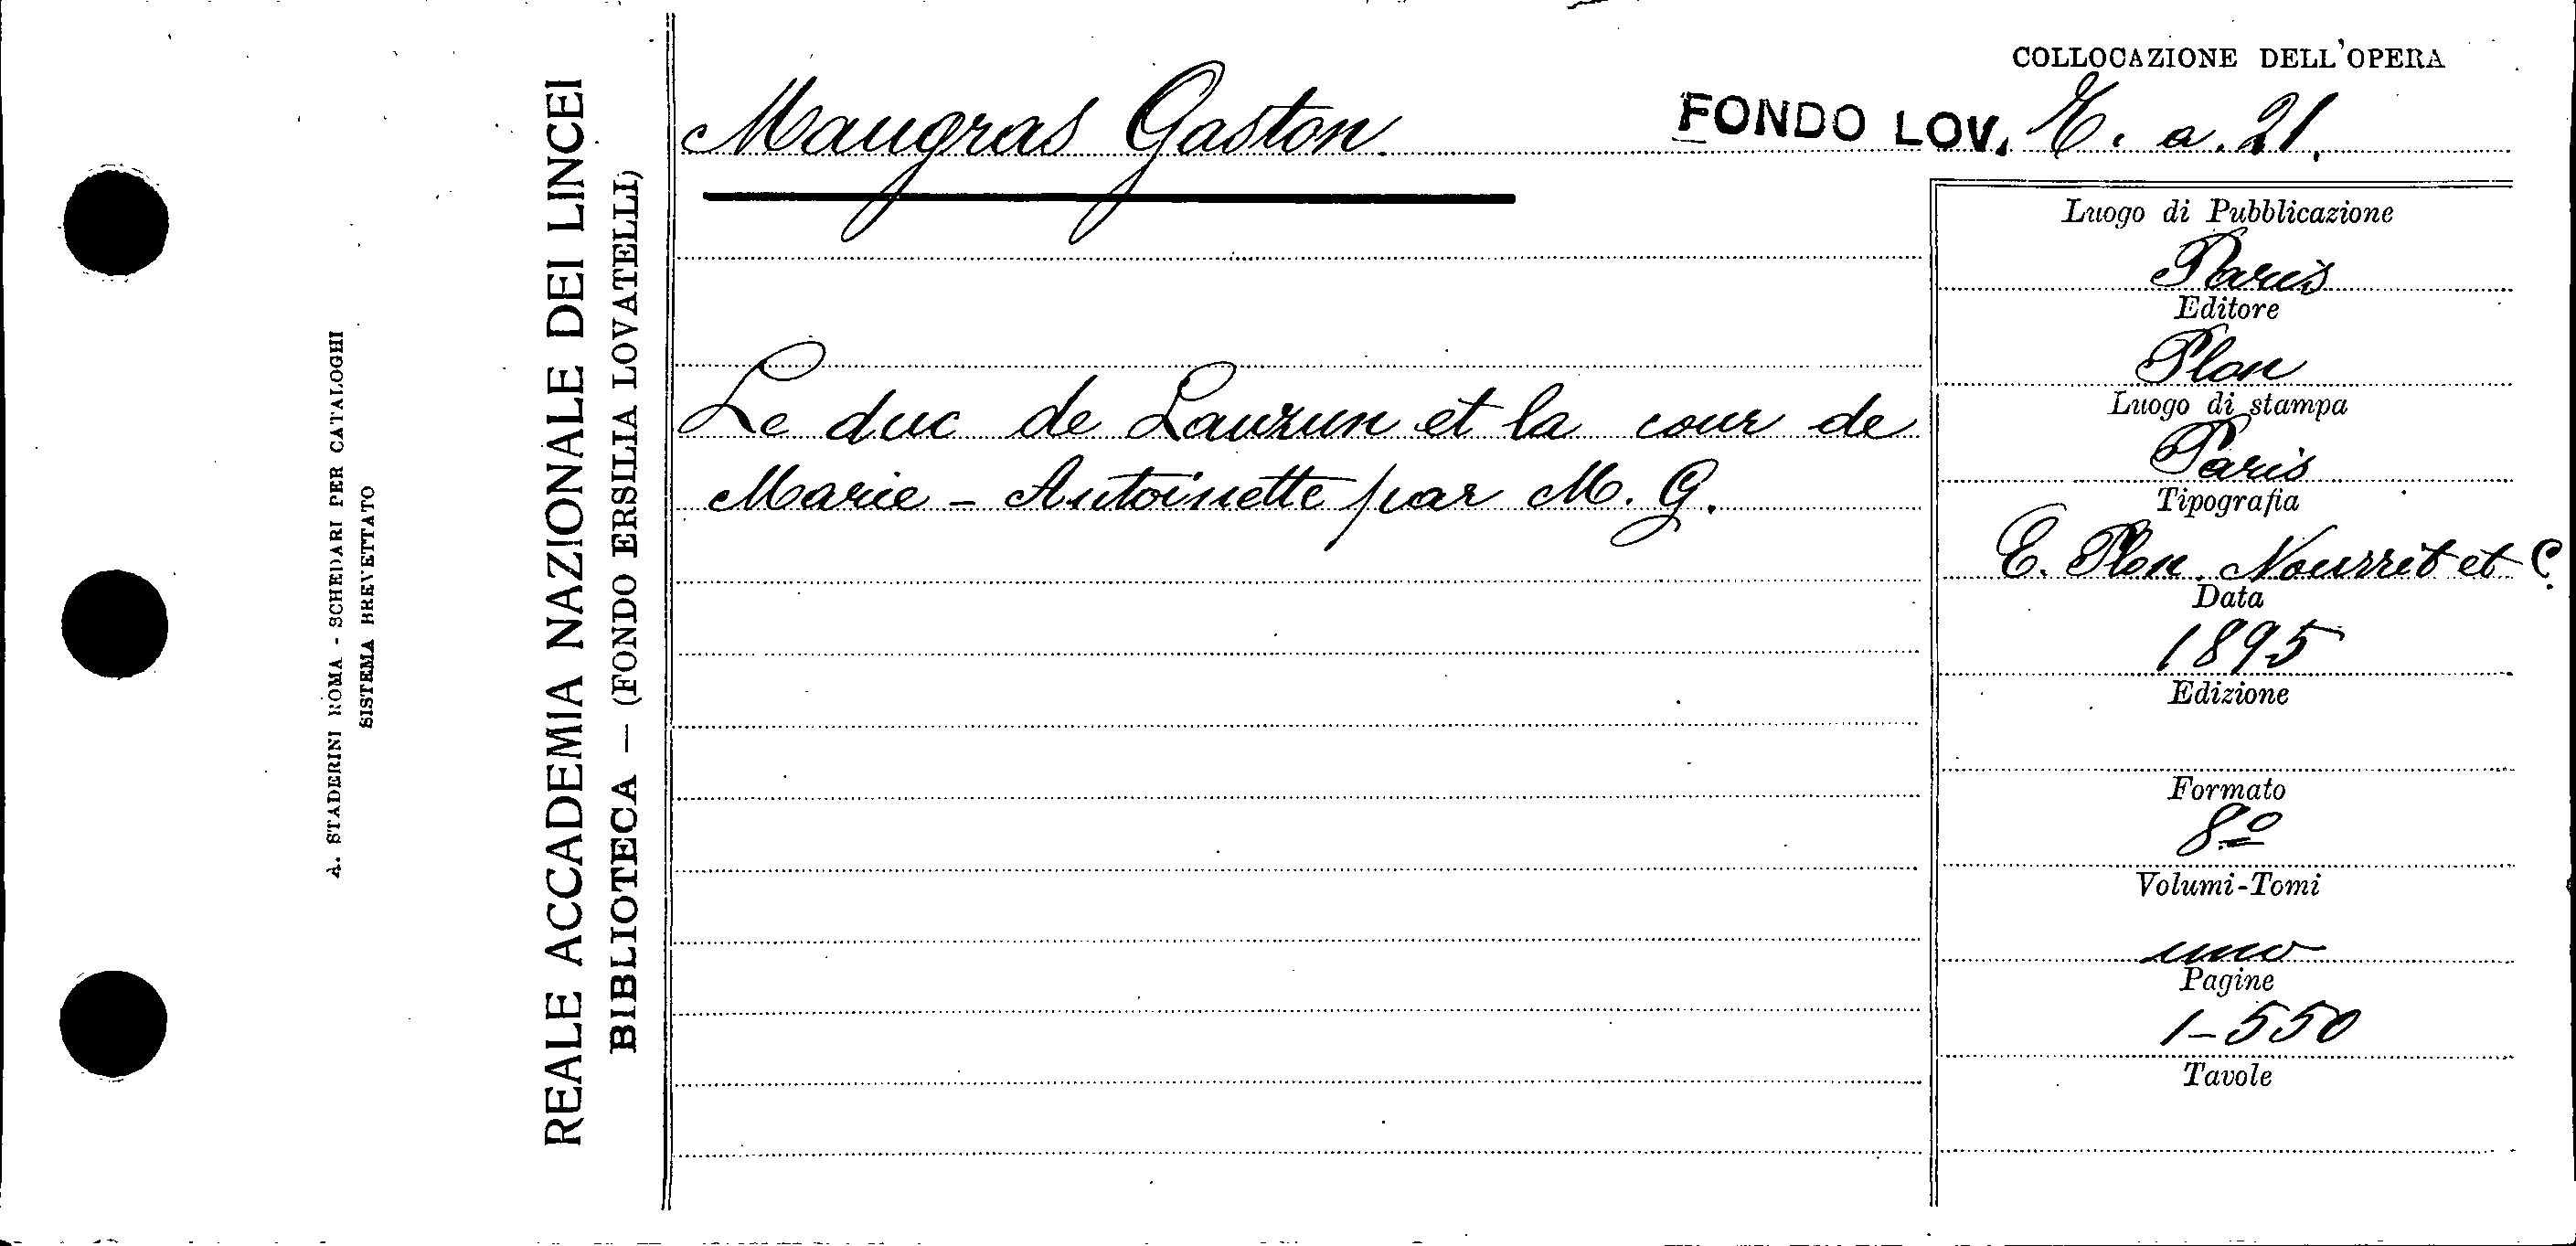 A. STADERINI ROMA - SCHEDARI PER CATALOGHI
SISTEMA BREVETTATO
REALE ACCADEMIA NAZIONALE DEI LINCEI
BIBLIOTECA — (FONDO ERSILIA LOVATELLI)
COLLOCAZIONE DELL'OPERA
Maugras Gaston
FONDO LOV. E. a. 21.
Le duc de Lauzun et la cour de
Marie - Antoinette par M. G.
Luogo di Pubblicazione
Paris
Editore
Plon
Luogo di stampa
Paris
Tipografia
E. Plon. Nourrit et C.
Data
1895
Edizione
Formato
8º
Volumi-Tomi
uno
Pagine
1-550
Tavole